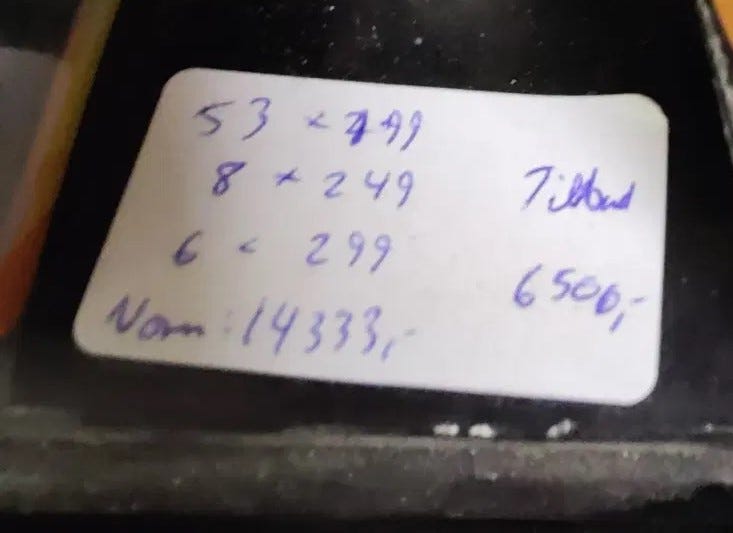 53 x 199
8 x 249
6 x 299
Norm: 14333,-
Tilbud
6500,-